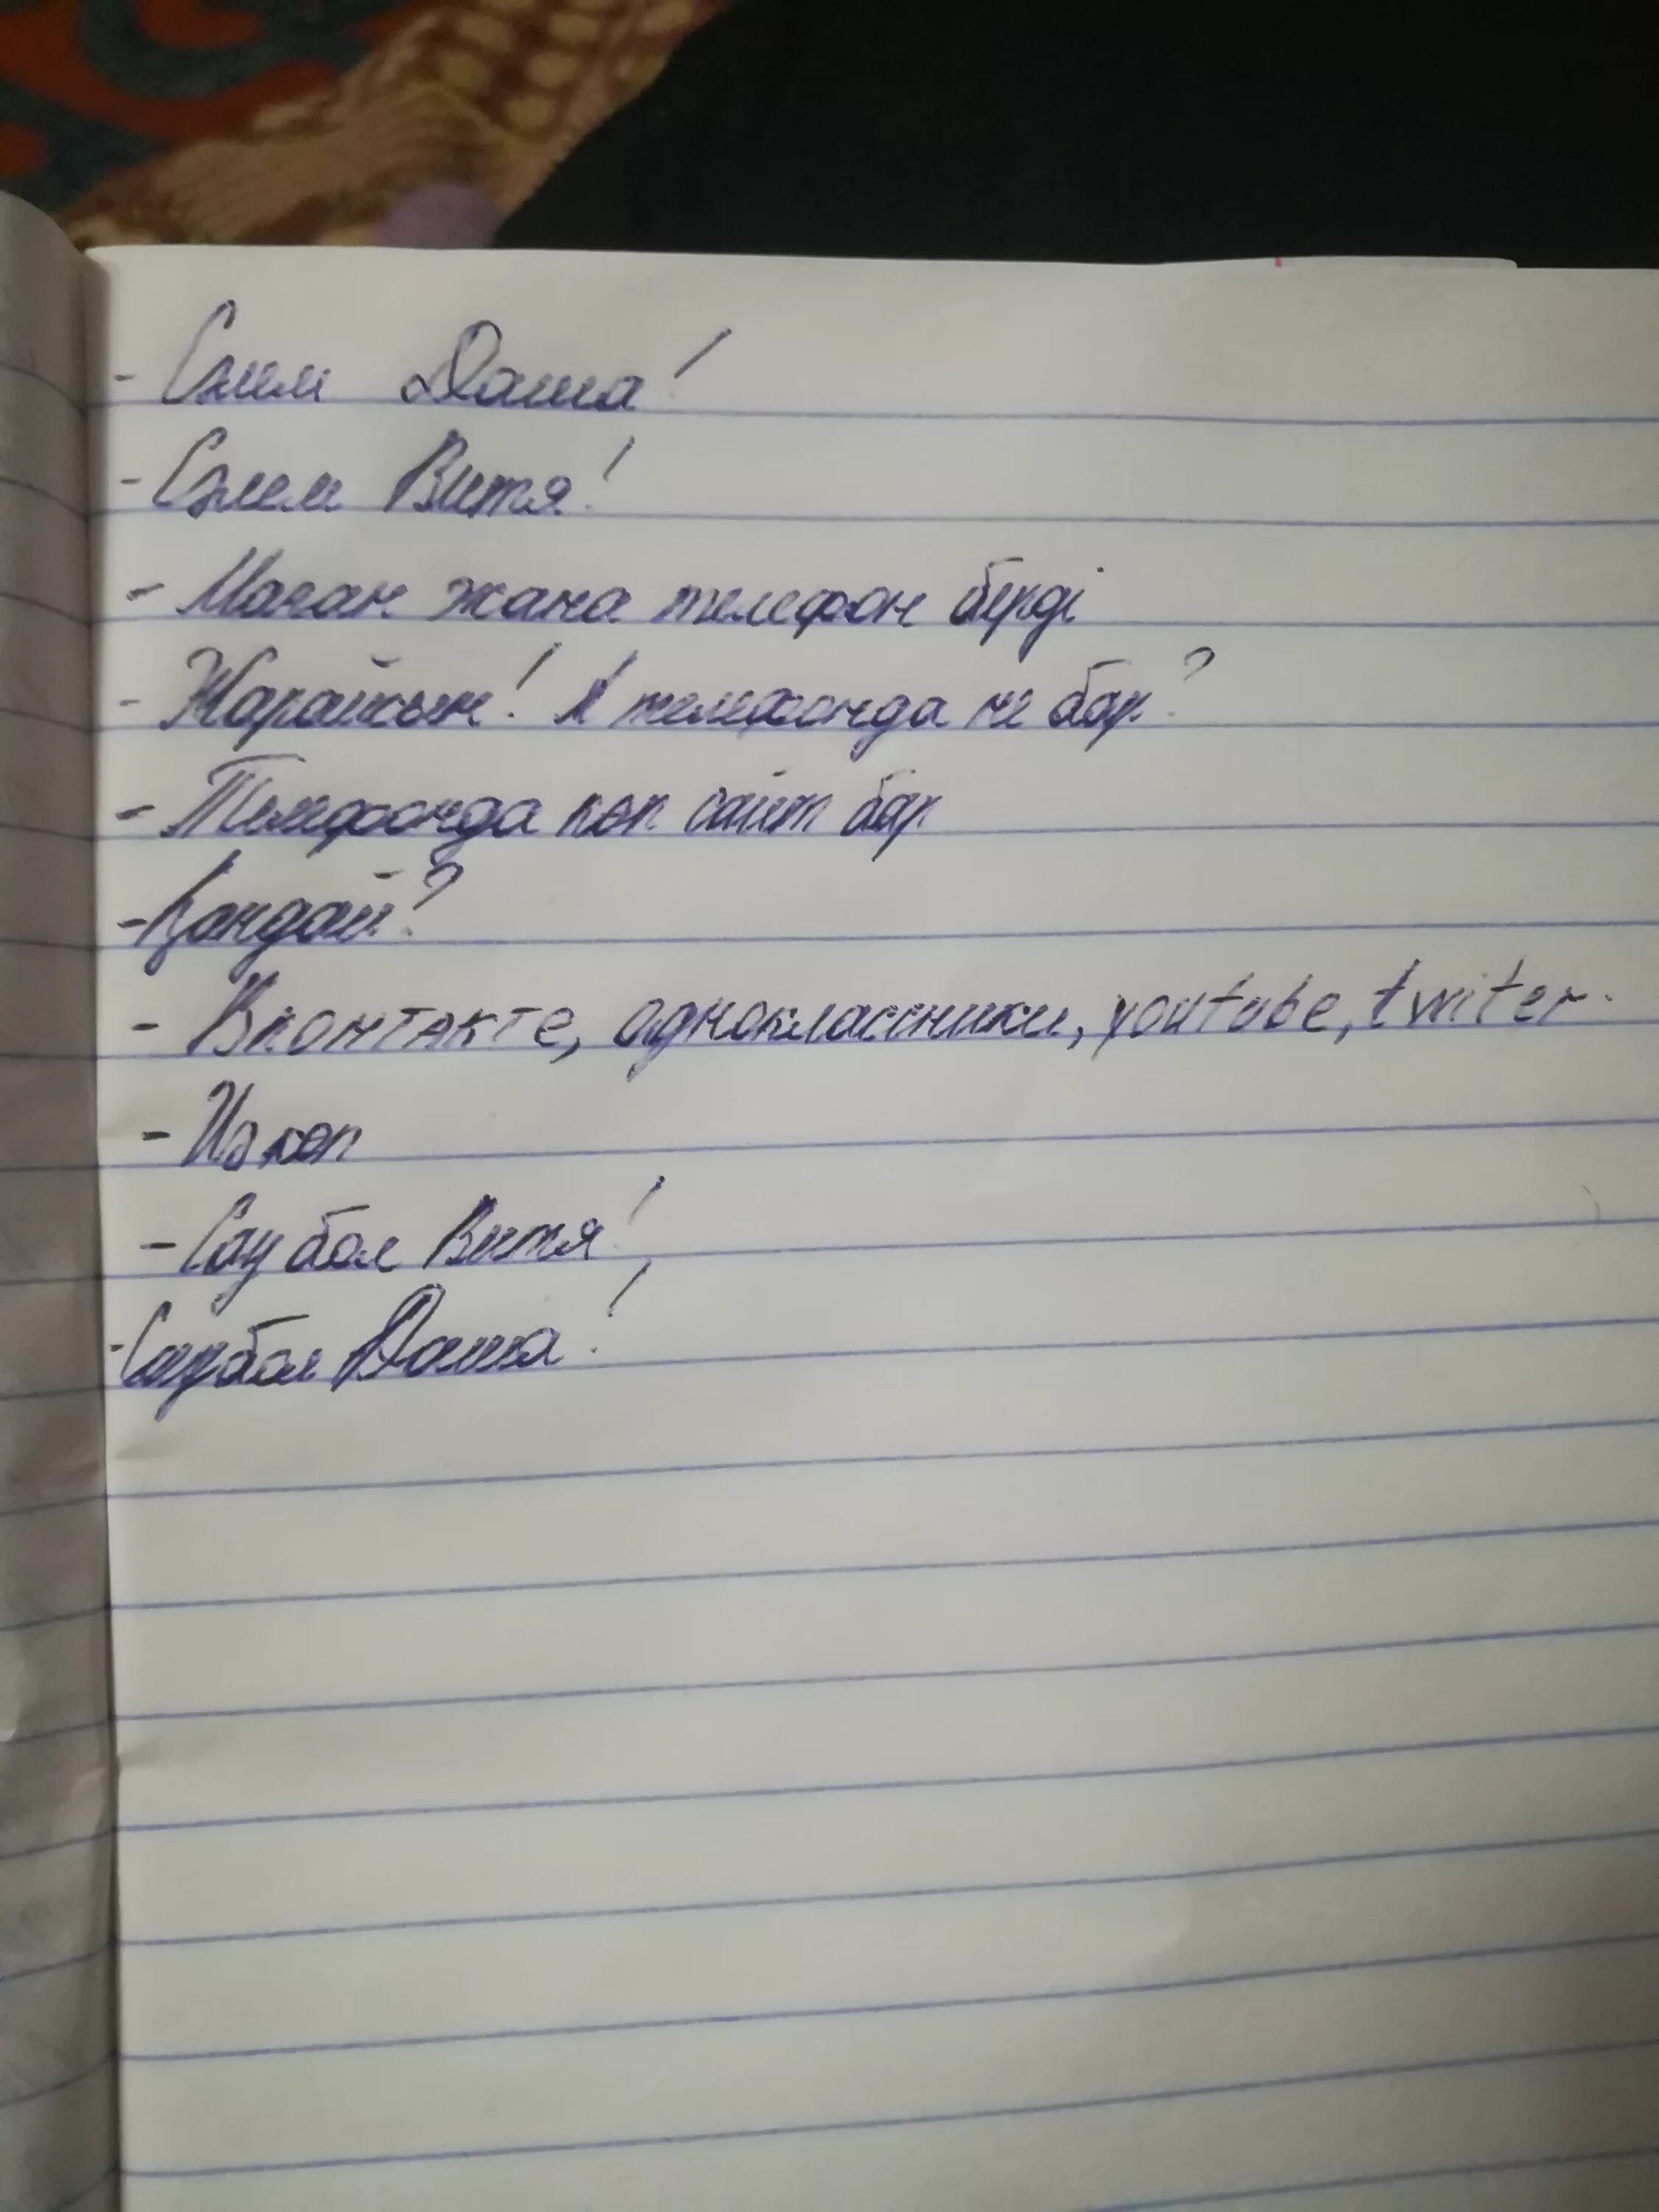 - Сәлем Даша!
- Сәлем Витя!
- Маған жаңа телефон берді
- Жарайсың! А телефонда не бар?
- Телефонда көп сайт бар
- Қандай?
- Вконтакте, одноклассники, youtube, twiter.
- Иә көп
- Сау бол Витя!
- Сау бол Даша!